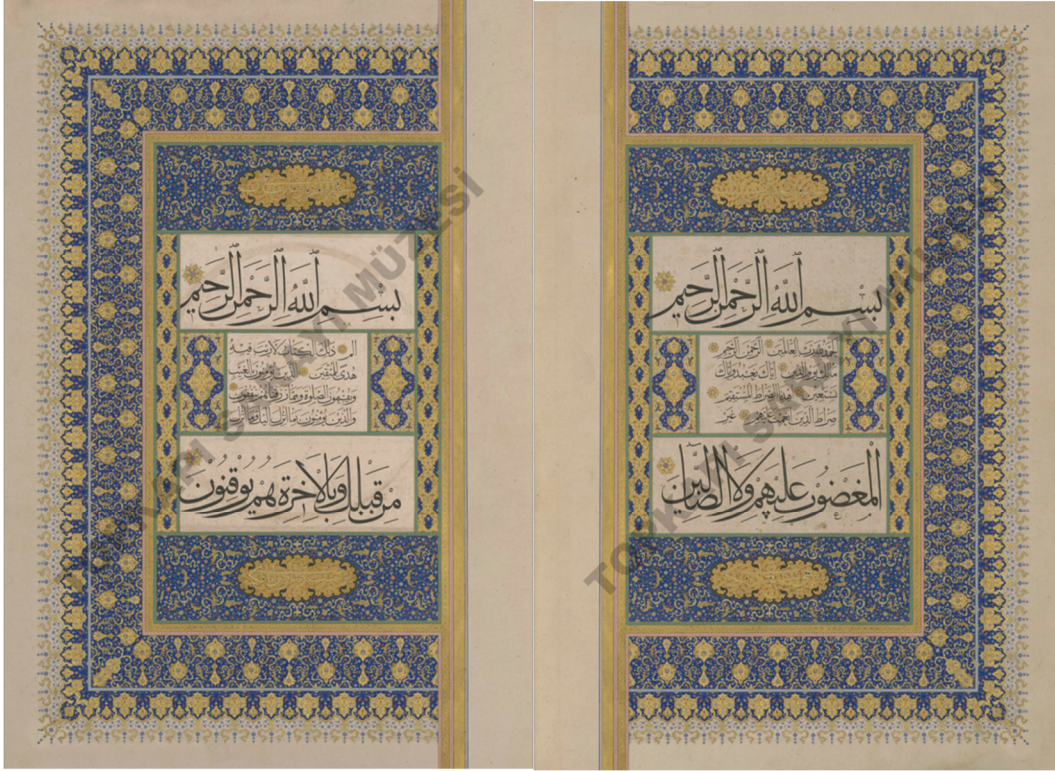 بسم الله الرحمن الرحيم
الحمد لله رب العالمين الرحمن الرحيم
مالك يوم الدين اياك نعبد واياك
نستعين اهدنا الصراط المستقيم
صراط الذين انعمت عليهم غير
المغضوب عليهم ولا الضالين
بسم الله الرحمن الرحيم
الم ذلك الكتاب لا ريب فيه
هدى للمتقين الذين يؤمنون بالغيب
ويقيمون الصلوة ومما رزقناهم ينفقون
والذين يؤمنون بما انزل اليك وما انزل
من قبلك وبالاخرة هم يوقنون
TOPKAPI SARAYI MÜZESİ
TOPKAPI SARAYI MÜZESİ